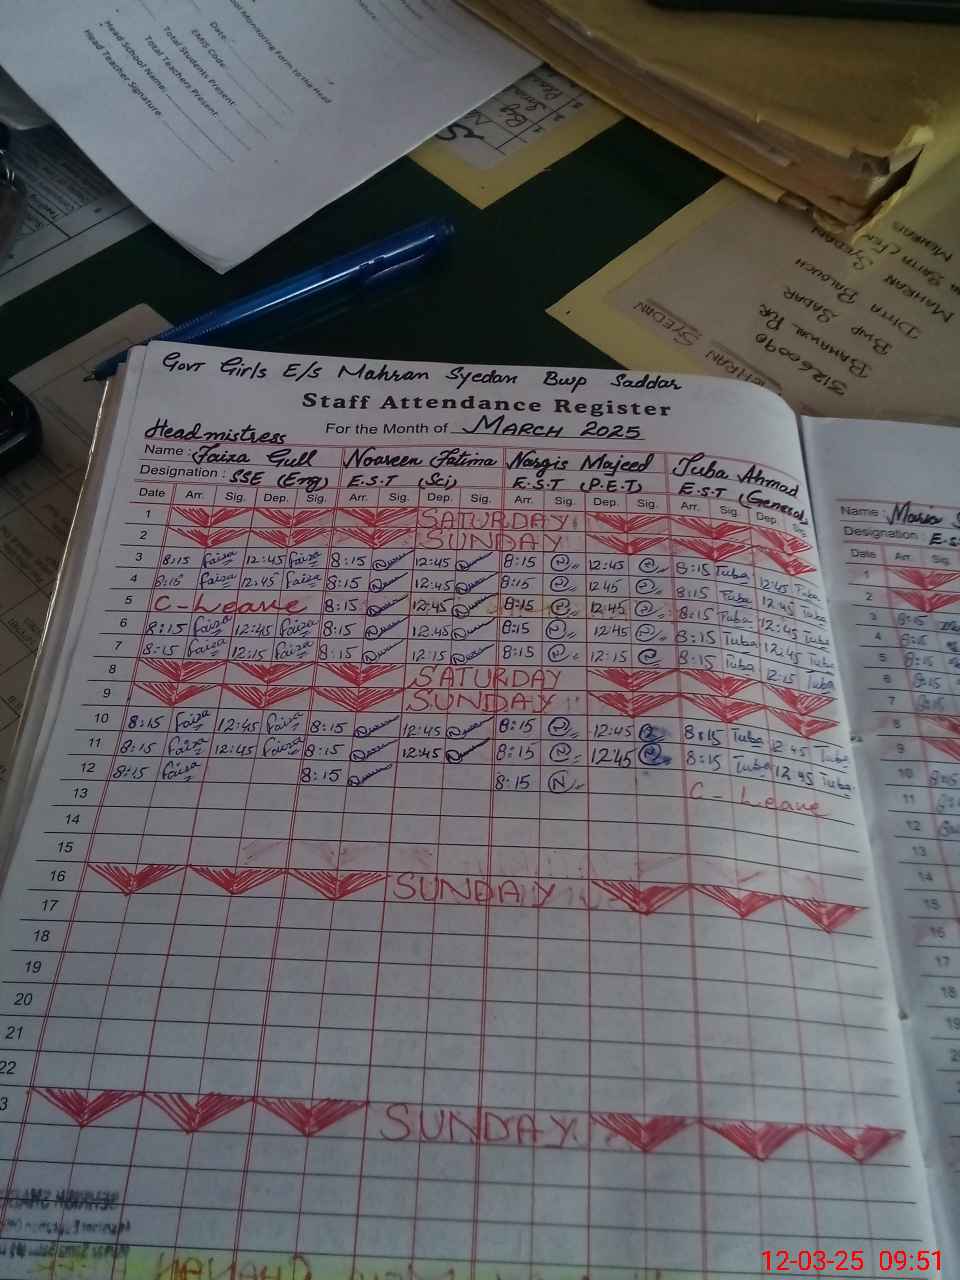 School Monitoring Form to the Head
Date:
EMIS Code:
Total Students Present:
Total Teachers Present:
Head School Name:
Head Teacher Signature:
SYEDAN
31260090
BAHAWAL PUR
BWP SADAR
DITTA BALOUCH
MAHRAN SYEDAN
Govt Girls E/S Mahran Syedan Bwp Saddar
Staff Attendance Register
For the Month of MARCH 2025
Headmistress
Name : Faiza Gull Noaveen Fatima Nargis Majeed Tuba Ahmad
Designation : SSE (Eng) E.S.T (Sci) E.S.T (P.E.T) E.S.T (General)
Date Arr. Sig. Dep. Sig. Arr. Sig. Dep. Sig. Arr. Sig. Dep. Sig. Arr. Sig. Dep. Sig.
1 SATURDAY
2 SUNDAY
3 8:15 Faiza 12:45 Faiza 8:15 12:45 8:15 N 12:45 8:15 Tuba 12:45 Tuba
4 8:15 Faiza 12:45 Faiza 8:15 12:45 8:15 N 12:45 8:15 Tuba 12:45 Tuba
5 C-Leave 8:15 12:45 8:15 12:45 8:15 Tuba 12:45 Tuba
6 8:15 Faiza 12:45 Faiza 8:15 12:45 8:15 N 12:45 8:15 Tuba 12:45 Tuba
7 8:15 Faiza 12:15 Faiza 8:15 12:15 8:15 N 12:15 8:15 Tuba 12:15 Tuba
8 SATURDAY
9 SUNDAY
10 8:15 Faiza 12:45 Faiza 8:15 12:45 8:15 N 12:45 8:15 Tuba 12:45 Tuba
11 8:15 Faiza 12:45 Faiza 8:15 12:45 8:15 N 12:45 N 8:15 Tuba 12:45 Tuba
12 8:15 Faiza 8:15 8:15 N C-Leave
13
14
15
16 SUNDAY
17
18
19
20
21
22
3 SUNDAY
Name : Maria
Designation : E-S
Date Arr. Sig.
1
2
3 8:15
4 8:15
5 8:15
6 8:15
7 8:15
8
9
10 8:15
11
12
13
14
15
16
17
18
12-03-25 09:51